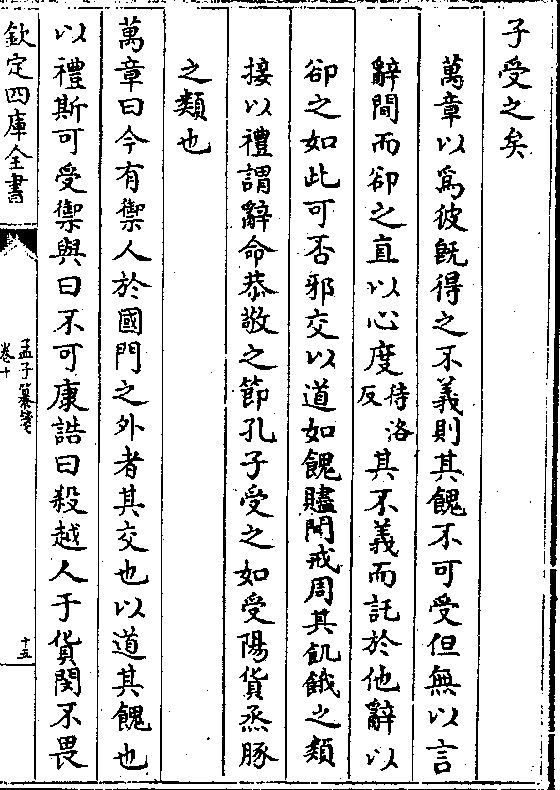 子受之矣
萬章以為彼既得之不義則其餽不可受但無以言
辭間而卻之直以心度待洛反其不義而託於他辭以
卻之如此可否邪交以道如餽贐聞戒周其飢餓之類
接以禮謂辭命恭敬之節孔子受之如受陽貨烝豚
之類也
萬章曰今有禦人於國門之外者其交也以道其餽也
以禮斯可受禦與曰不可康誥曰殺越人于貨閔不畏
欽定四庫全書
孟子纂箋
卷十
十五